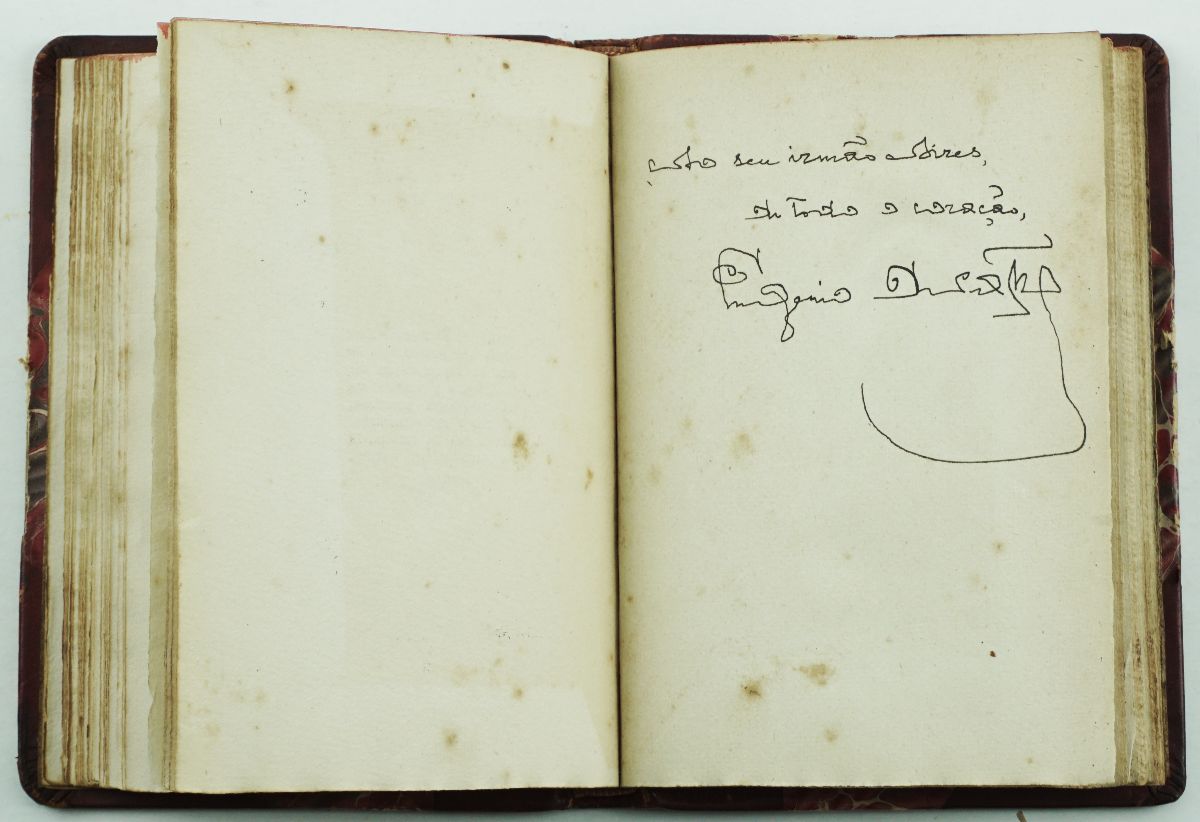 Ao seu irmão Aires,
de todo o coração,
Eugenio de Castro